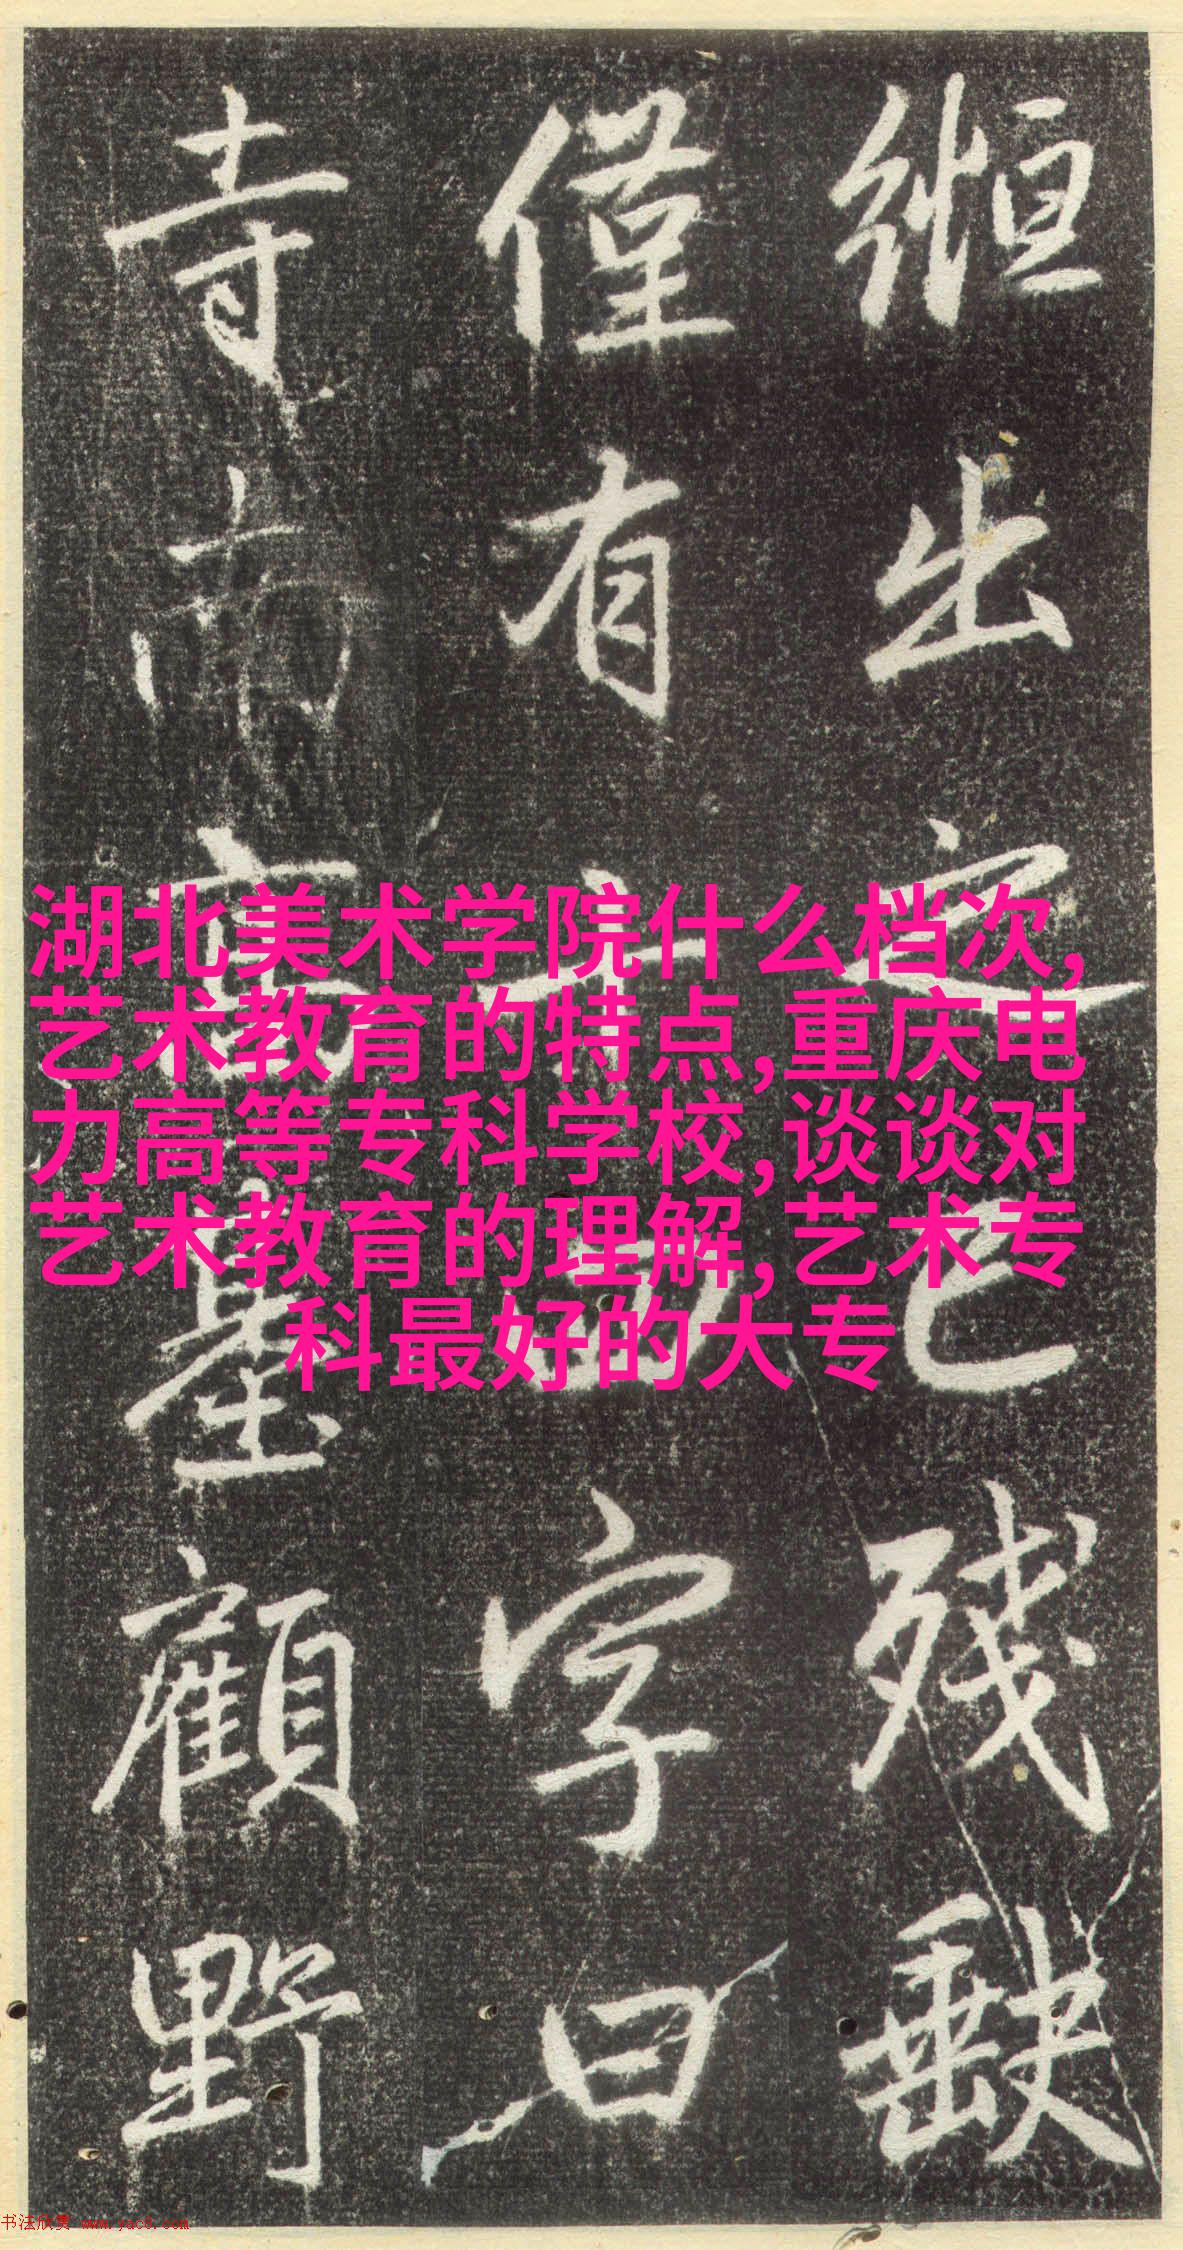 縆出之已残缺
僅有字曰
寺南高基顧野
湖北美术学院什么档次,
艺术教育的特点,重庆电
力高等专科学校,谈谈对
艺术教育的理解,艺术专
科最好的大专
书法欣赏 www.yac8.com